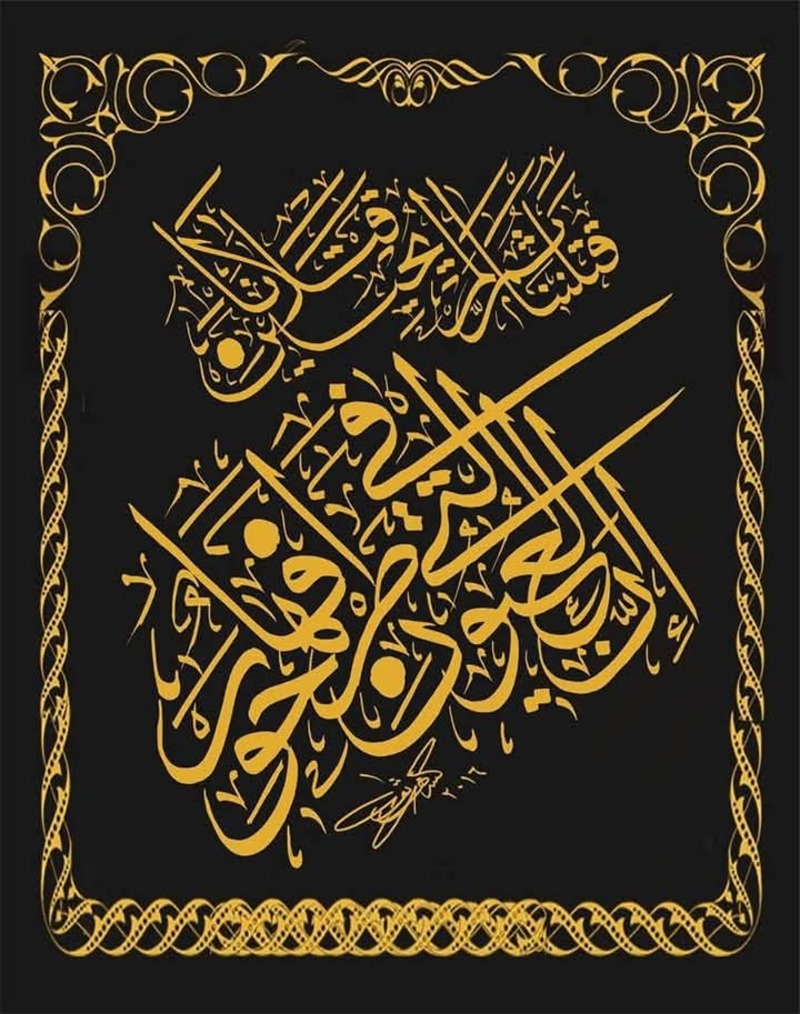 إنّ العيون التي في طرفها حور
قتلننا ثم لم يحيين قتلانا
٢٠١٦